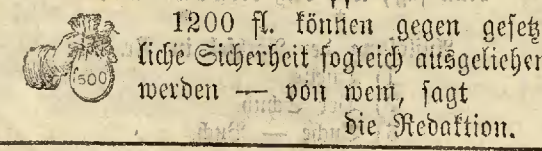 1200 fl. können gegen gesetz
liche Sicherheit sogleich ausgeliehen
500
werden — von wem, sagt
die Redaktion.